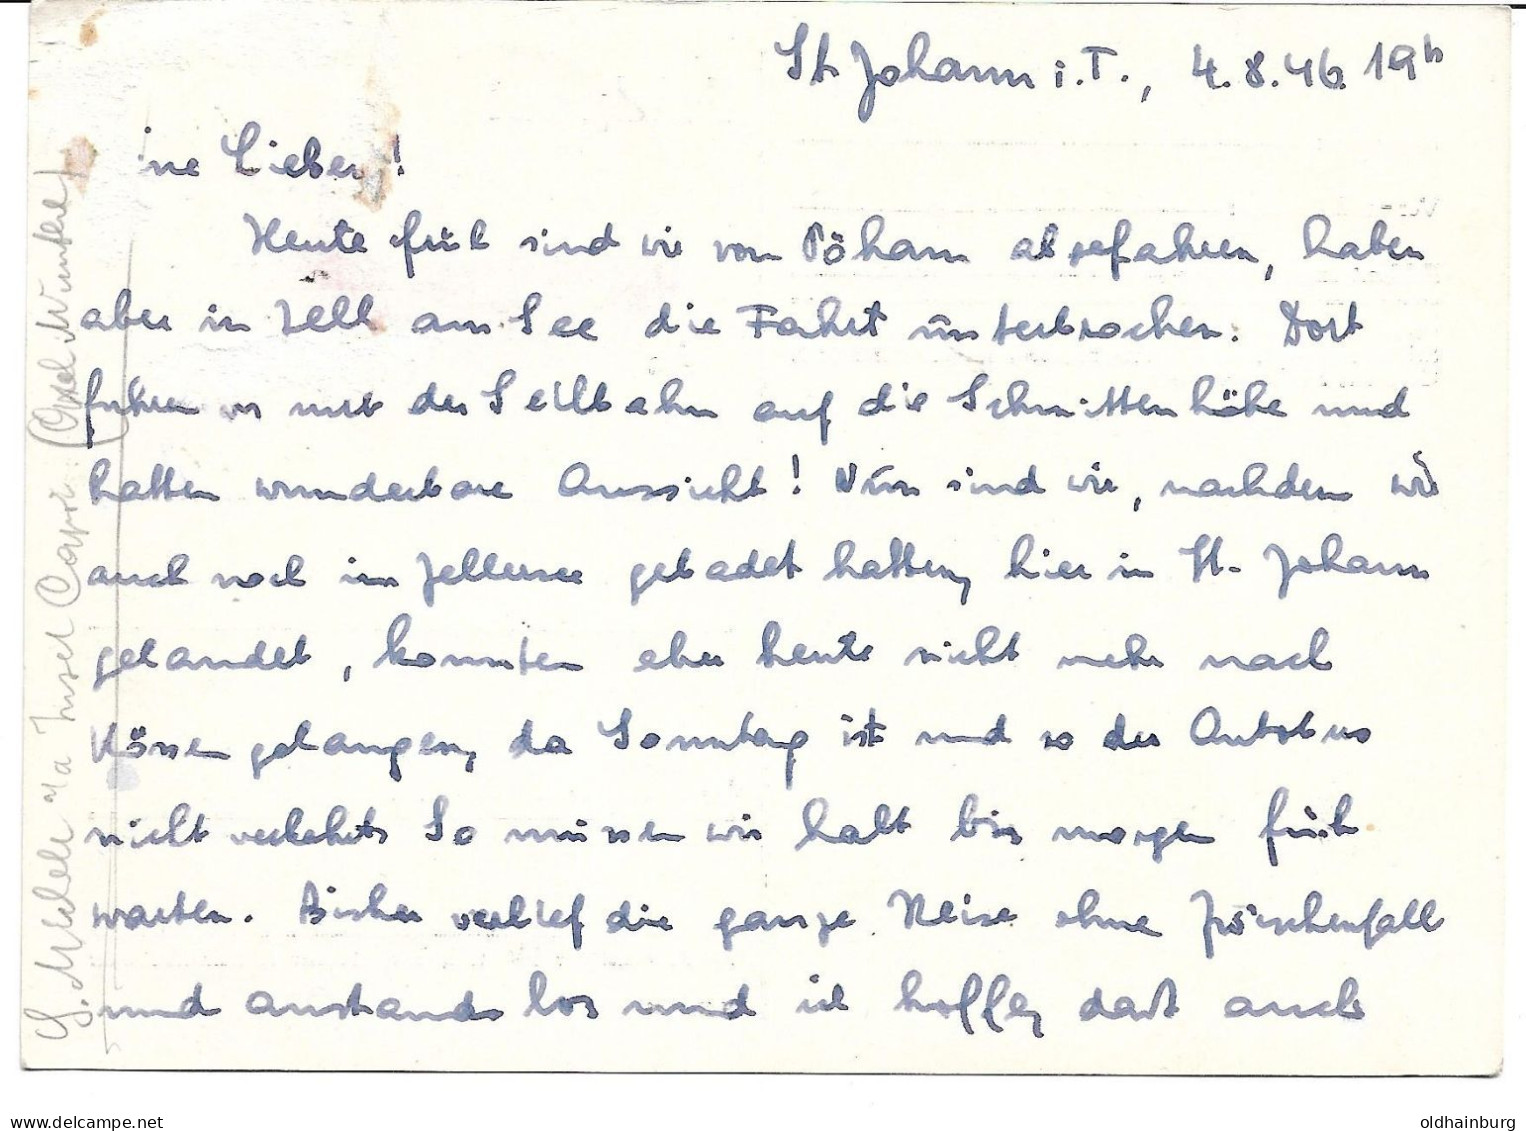 St Johann i.T., 4.8.46. 19h
ine Lieben!
Heute früh sind wir von Pöham abgefahren, haben
aber in Zell am See die Fahrt unterbrochen. Dort
fuhren wir mit der Seilbahn auf die Schmittenhöhe und
hatten wunderbare Aussicht! Nun sind wir, nachdem wir
auch noch im Zellersee gebadet hatten, hier in St. Johann
gelandet, konnten aber heute nicht mehr nach
Kössen gelangen, da Sonntag ist und so der Autobus
nicht verkehrt. So müssen wir halt bis morgen früh
warten. Bisher verlief die ganze Reise ohne Zwischenfall
und anstandslos und ich hoffe, daß auch
Insel Capri (Axel Munthe)
oldhainburg